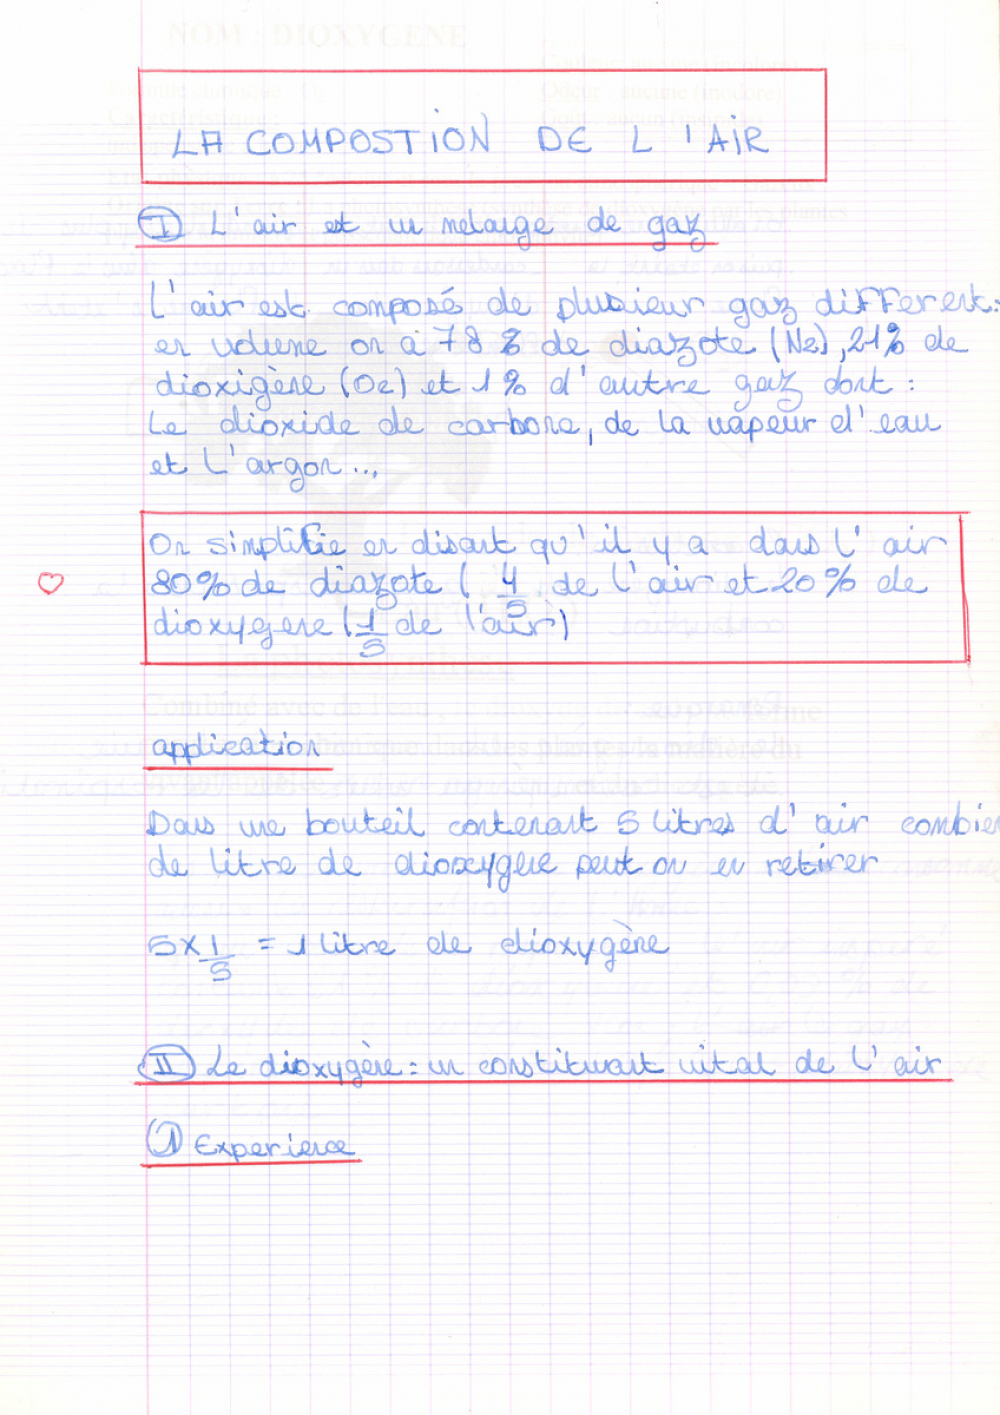 LA COMPOSTION DE L'AIR
I L'air est un melange de gaz
L'air est composé de plusieur gaz different:
en volume on à 78 % de diazote (N2), 21% de
dioxigène (O2) et 1 % d'autre gaz dont :
Le dioxide de carbone, de la vapeur d'eau
et L'argon...
On simplifie en disant qu'il y a dans l'air
80% de diazote ( 4/5 de l'air et 20% de
dioxygene (1/5 de l'air)
application
Dans une bouteil contenant 5 litres d'air combien
de litre de dioxygène peut on en retirer
5 x 1/5 = 1 litre de dioxygène
II Le dioxygène : un constituant vital de L'air
1 Experience